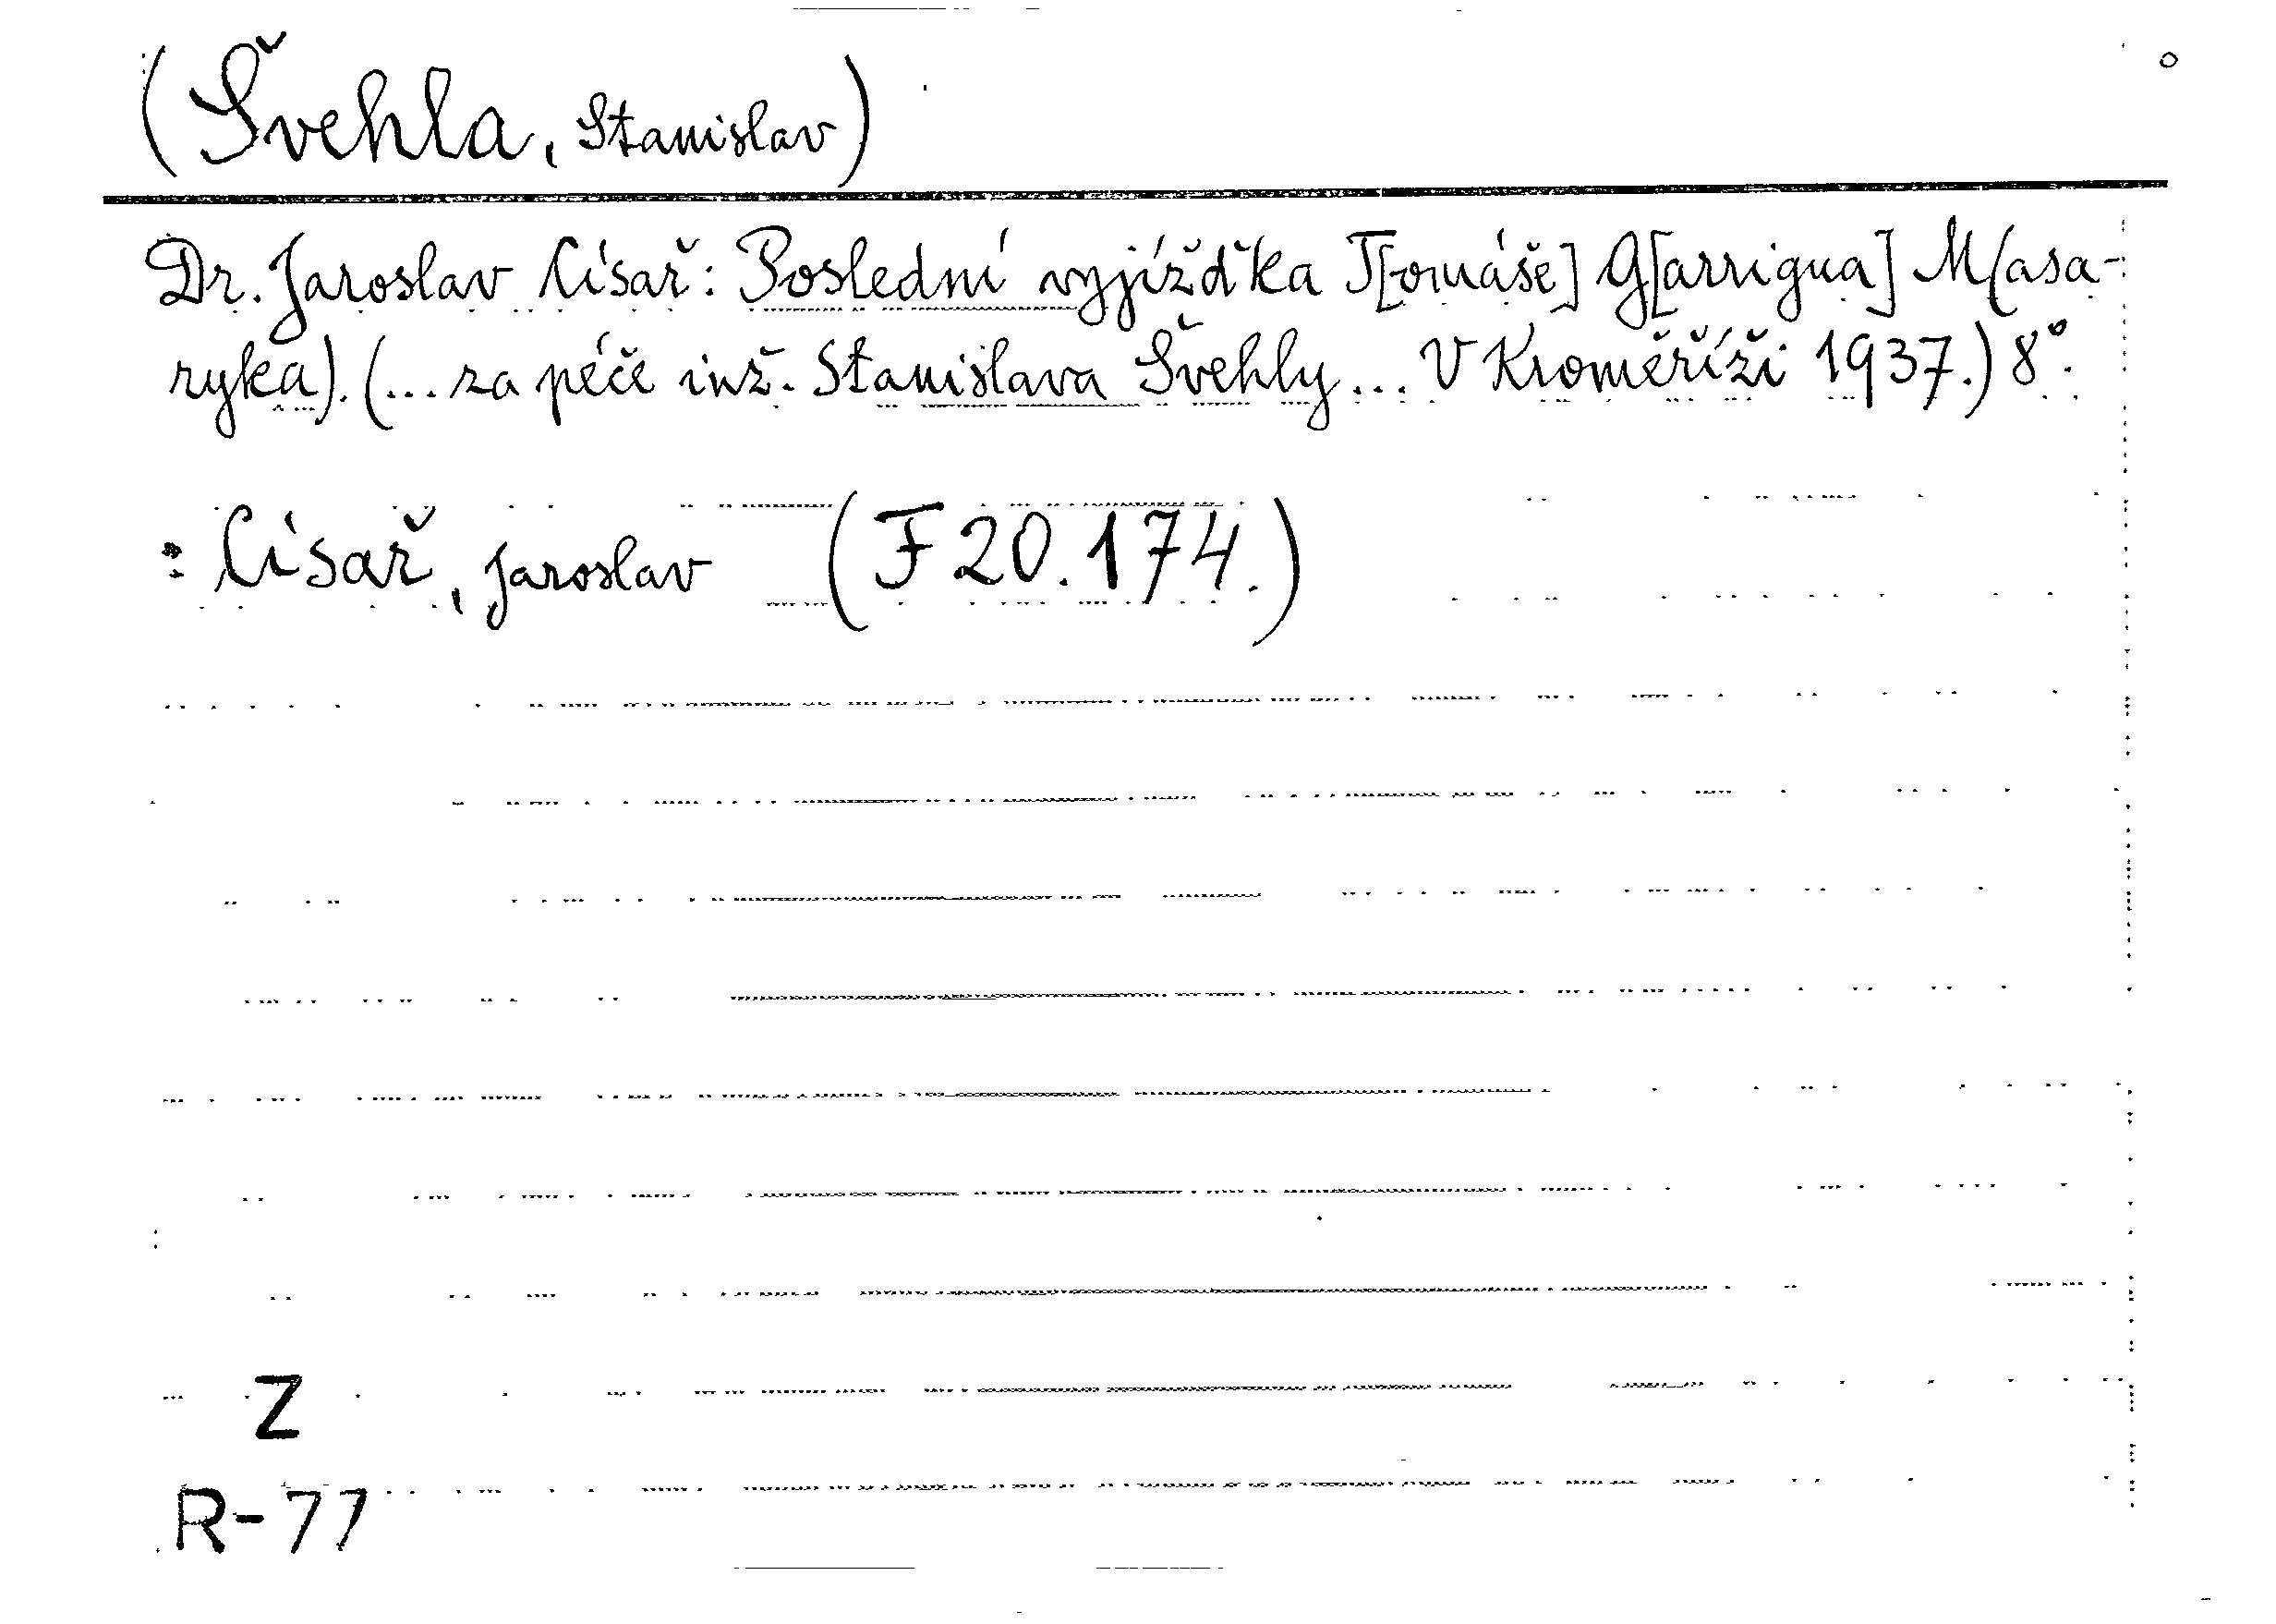 (Švehla, Stanislav)
Dr. Jaroslav Císař: Poslední vyjížďka T[omáše] G[arrigua] M(asa-
ryka). (... za péče inž. Stanislava Švehly ... V Kroměříži 1937.) 8°.
: Císař, Jaroslav (F 20.174.)
Z
R-77